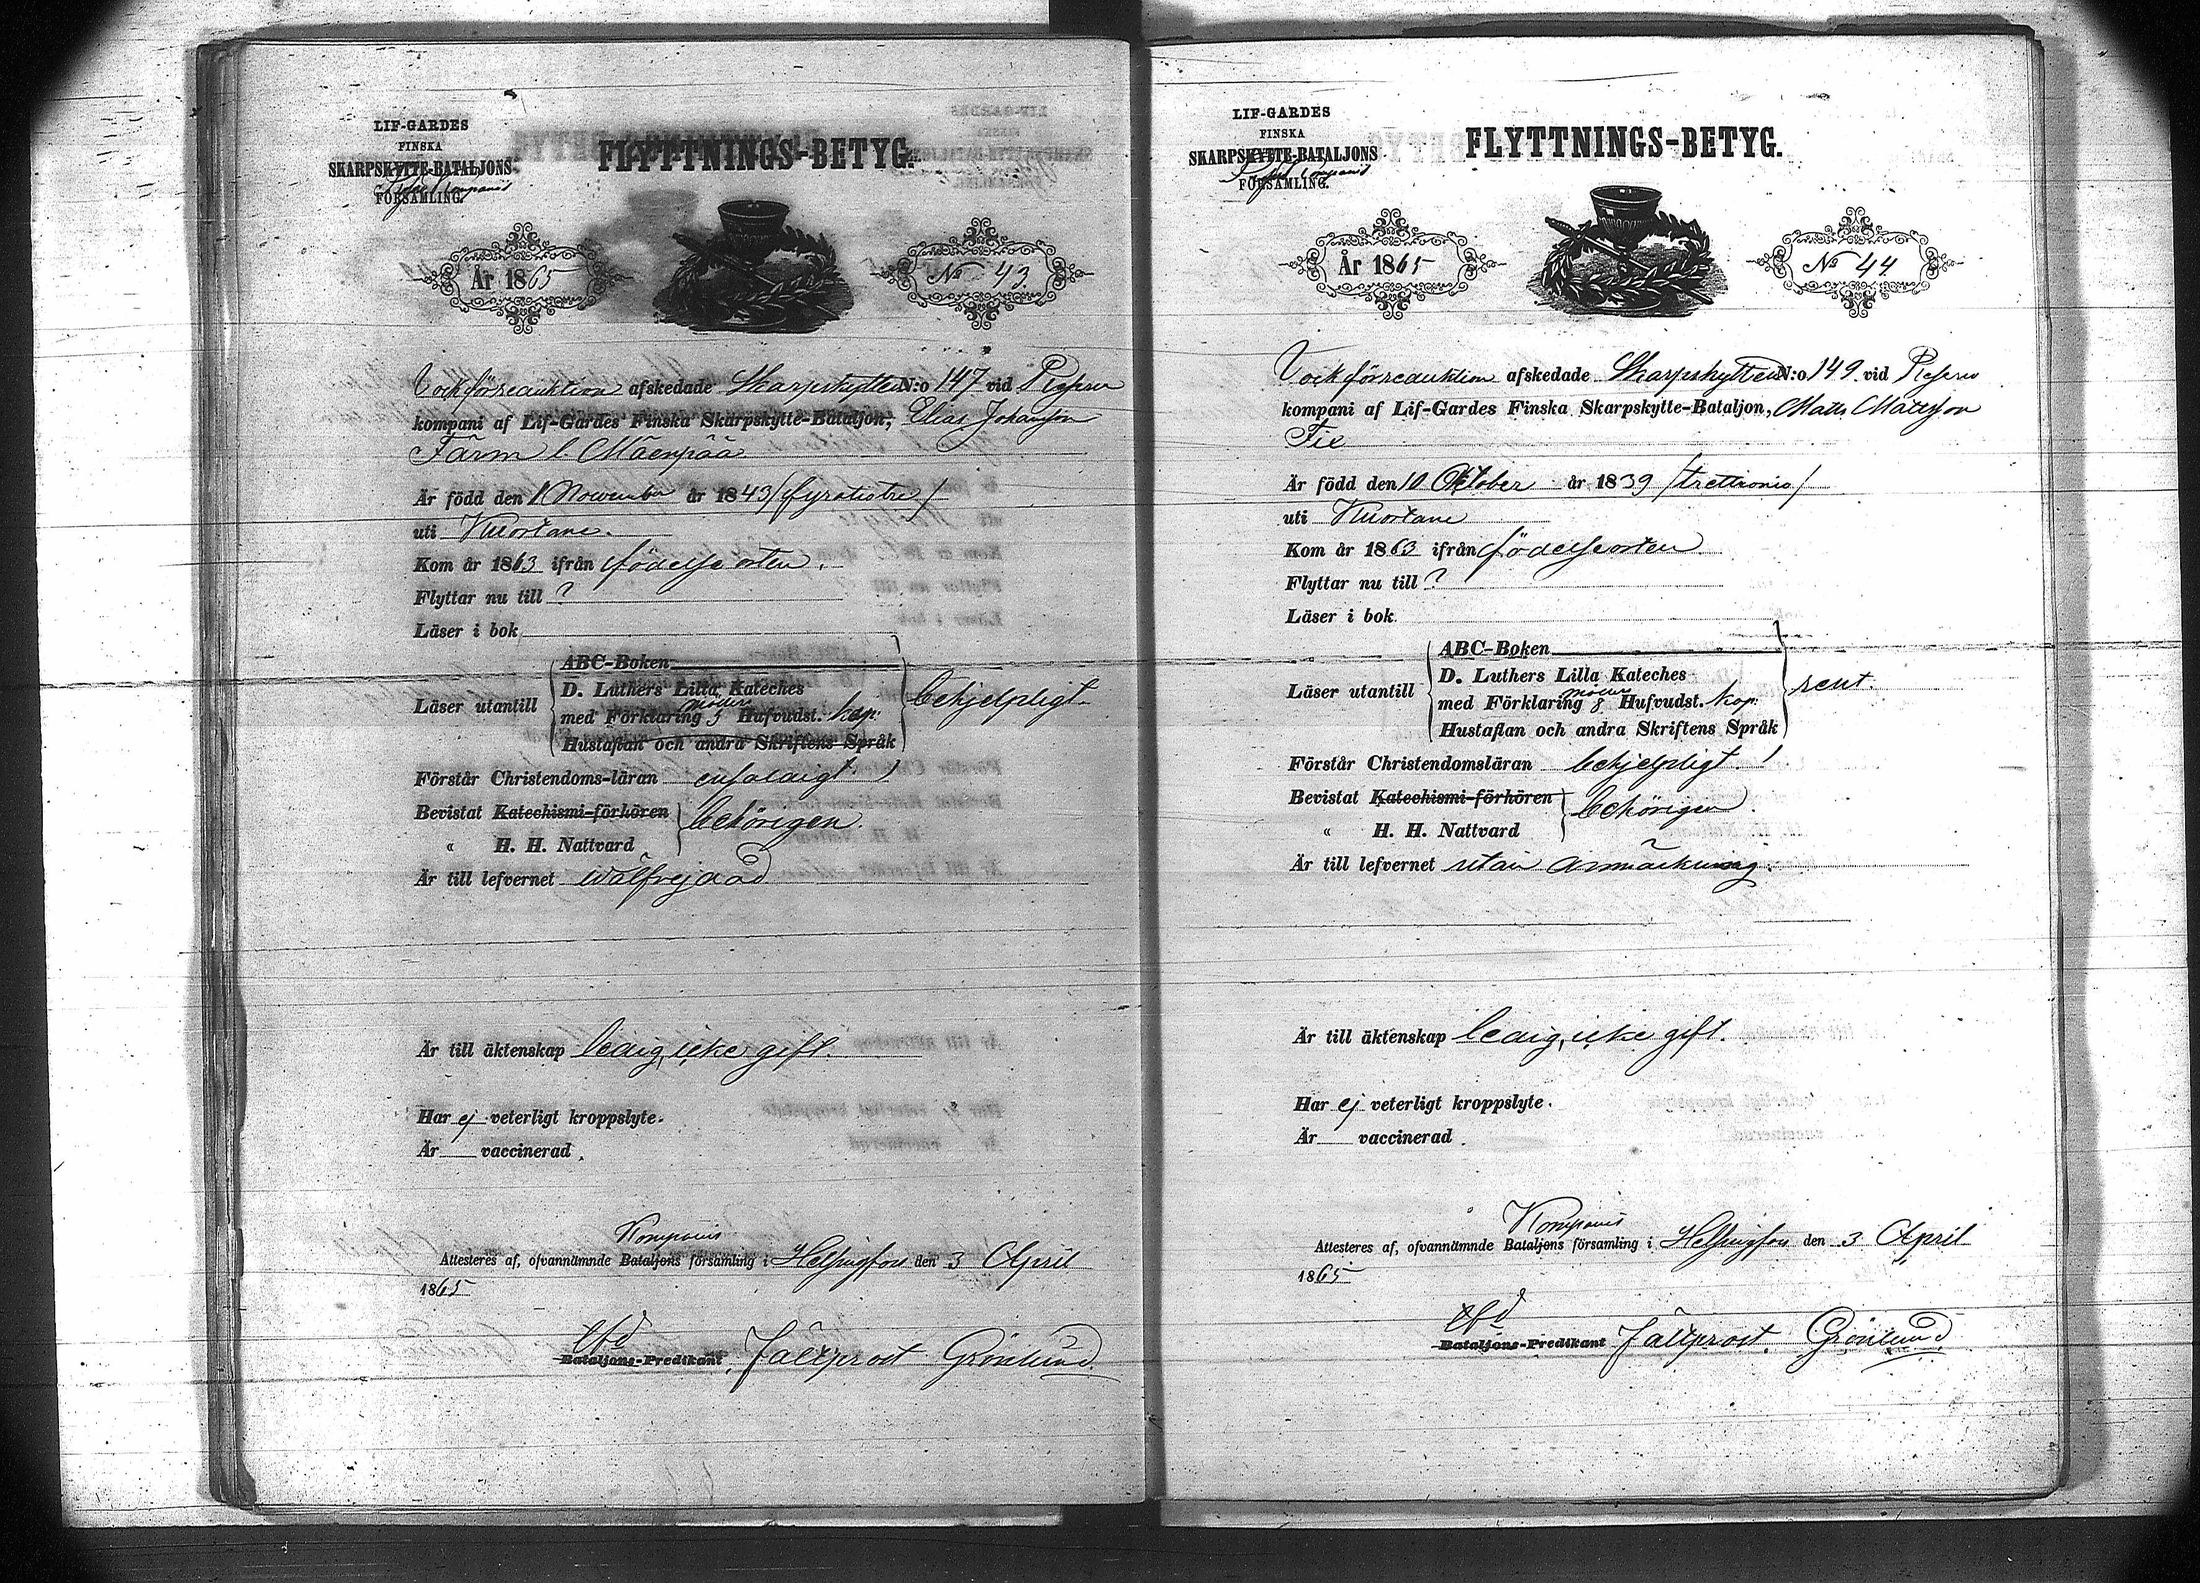 LIF-GARDES
FINSKA
SKARPSKYTTE-BATALJONS
Kompanis
FÖRSAMLING.
FLYTTNINGS-BETYG.
År 1865
No 43.
afskedade Skarpskytten N:o 147 vid Reserv
kompani af Lif-Gardes Finska Skarpskytte-Bataljon, Elias Johansson
Färm l. Mäenpää
Är född den 1 November år 1843 /fyratiotre/
uti Kuortane.
Kom år 1863 ifrån födelseorten.
Flyttar nu till ?
Läser i bok
Läser utantill
ABC-Boken
D. Luthers Lilla Kateches
med Förklaring 5 Hufvudst. kap.
Hustaflan och andra Skriftens Språk
behjelpligt.
Förstår Christendoms-läran enfaldigt.
Bevistat Katechismi-förhören
" H. H. Nattvard
behörigen.
Är till lefvernet wälfrejdad
Är till äktenskap ledig, icke gift.
Har ej veterligt kroppslyte.
Är vaccinerad.
Kompanis
Attesteres af, ofvannämnde Bataljons församling i Helsingfors den 3 April
1865
Bataljons-Predikant, Fältprost Grönlund.
LIF-GARDES
FINSKA
SKARPSKYTTE-BATALJONS
Kompanis
FÖRSAMLING.
FLYTTNINGS-BETYG.
År 1865
No 44
afskedade Skarpskytten N:o 149. vid Reserv
kompani af Lif-Gardes Finska Skarpskytte-Bataljon, Matts Mattsson
Fix
Är född den 10 Oktober år 1839 /trettionio/
uti Kuortane
Kom år 1863 ifrån födelseorten.
Flyttar nu till ?
Läser i bok
Läser utantill
ABC-Boken
D. Luthers Lilla Kateches
med Förklaring 8 Hufvudst. kap.
Hustaflan och andra Skriftens Språk
rent.
Förstår Christendomsläran behjelpligt.
Bevistat Katechismi-förhören
" H. H. Nattvard
behörigen.
Är till lefvernet utan anmärkning.
Är till äktenskap ledig, icke gift.
Har ej veterligt kroppslyte.
Är vaccinerad.
Kompanis
Attesteres af, ofvannämnde Bataljons församling i Helsingfors den 3 April
1865
Bataljons-Predikant Fältprost. Grönlund.